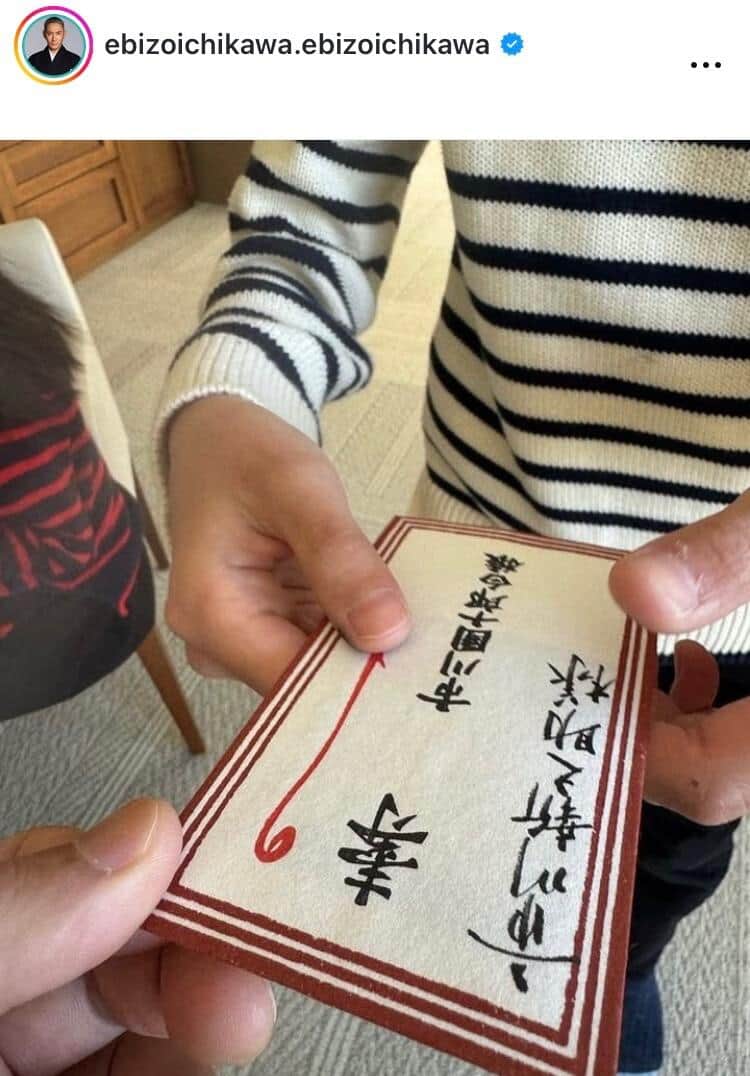 ebizoichikawa.ebizoichikawa
市川新之助様
壽
市川團十郎白猿